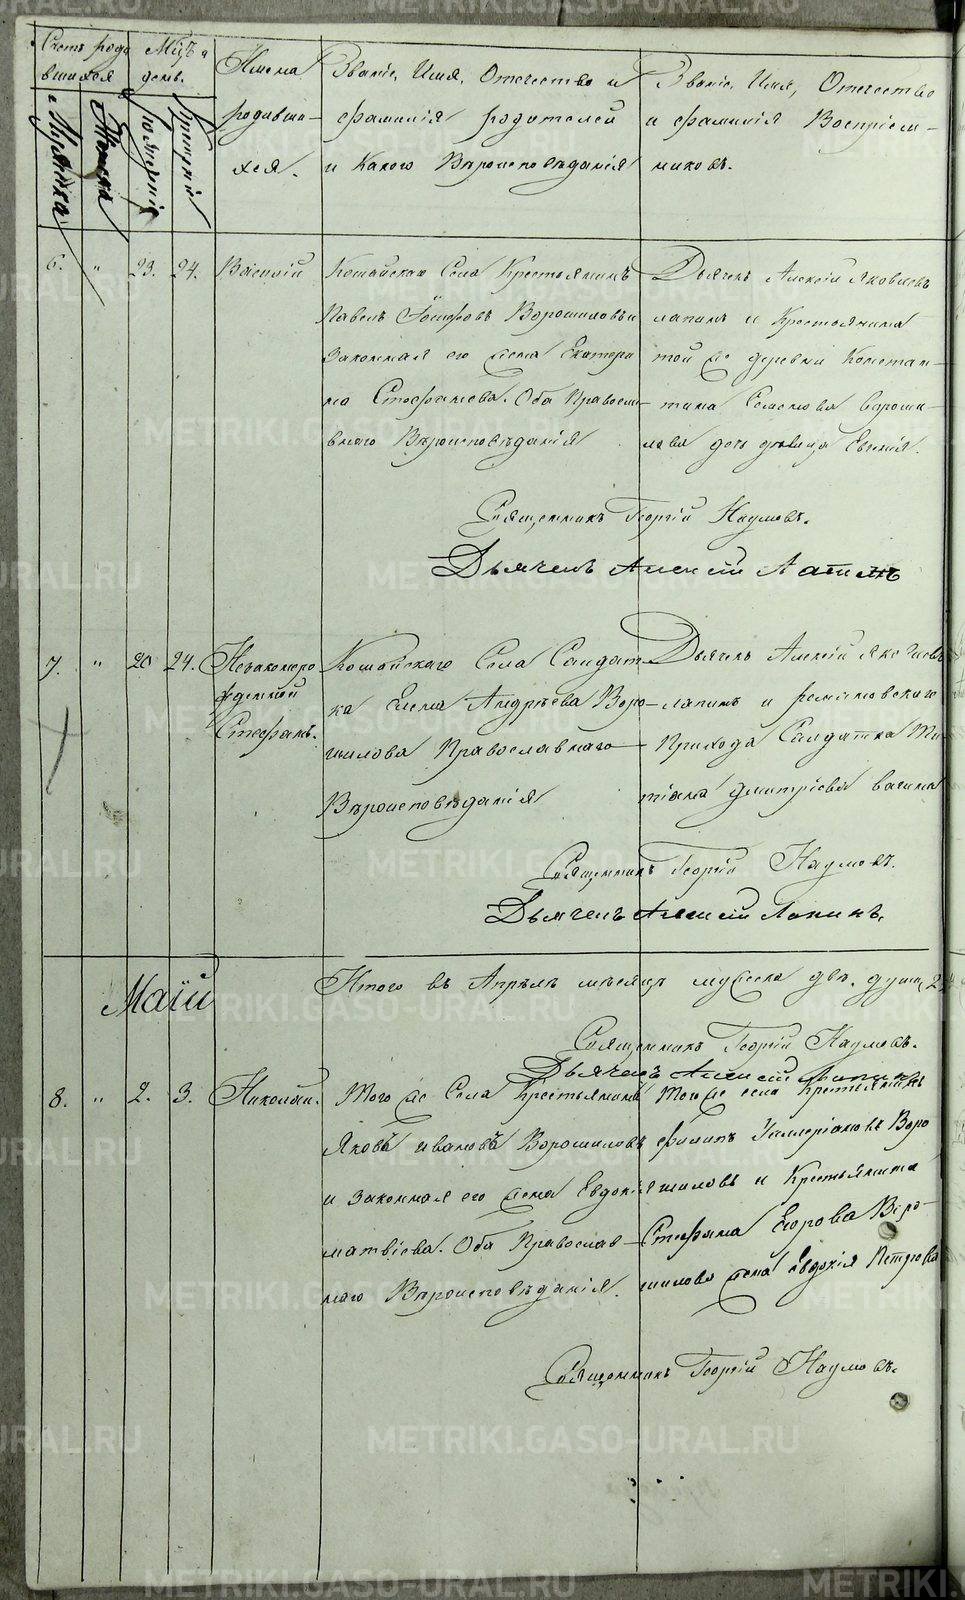 Счетъ роди
вшихся
Мужеска
Женска
Мц҃ъ и
день.
Рождения
Крещения
Имена
родивши-
хся.
Званiе, Имя, Отечество и
фамилiя родителей
и Какого Вѣроисповѣданiя
Званiе, Имя, Отечество
и фамилiя Воспрiем-
никовъ.
6. " 23. 24. Василiй
Кошайскаго Села Крестьянинъ
Павелъ Ворошиловъ и
Законная его жена Екатери
на Стефанова. Оба Правосла-
внаго Вѣроисповѣданiя
Дьячекъ Алексiй Яковлевъ
лапинъ и Крестьянина
той же деревни Констан-
тина Семенова вороши-
лова дочь девица Евгенiя.
Священникъ Георгiй Наумовъ.
Дьячекъ Алексiй Лапинъ
7. " 20 24. Незаконоро
жденной
Стефанъ.
Кошайскаго Села Солдат-
ка Елена Андрѣева Воро-
шилова Православнаго
Вѣроисповѣданiя
Дьячекъ Алексiй Яковлевъ
лапинъ и
Прихода Солдатка Та-
тiана Дмитрiева
Священникъ Георгiй Наумовъ.
Дьячекъ Алексiй Лапинъ.
Итого въ Апрѣлѣ мѣсяцѣ мужеска двѣ души 2
Маiй
Священникъ Георгiй Наумовъ.
Дьячекъ Алексiй Лапинъ
8. " 2. 3. Николай.
Того же Села Крестьянинъ
Яковъ ивановъ Ворошиловъ
и Законная его жена Евдокiя
матвiева. Оба Православ-
наго Вѣроисповѣданiя.
Того же села Крестьянинъ
филипъ Воро
шиловъ и Крестьянина
Стефана Егорова Воро-
шилова жена евдокiя Петрова
Священникъ Георгiй Наумовъ.
METRIKI.GASO-URAL.RU